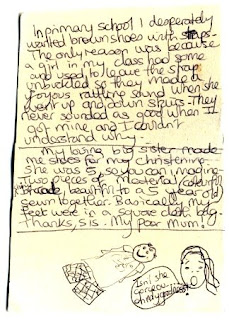 In primary school I desperately
wanted brown shoes with straps.
The only reason was because
a girl in my class had some
and used to leave the strap
unbuckled so they made a
joyous rattling sound when she
went up and down stairs. They
never sounded as good when I
got mine and I couldn't
understand why.
My loving big sister made
me shoes for my christening.
She was 5, so you can imagine.
Two pieces of material (colourful
brocade, beautiful to a 5 year old)
sewn together. Basically my
feet were in a square cloth bag.
Thanks, Sis. My poor Mum!
Isn't she
gorgeous..
oh my goodness!